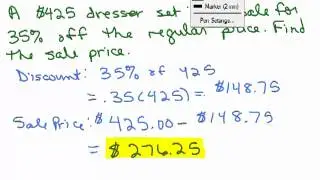 A $425 dresser set
sale for
35% off the regular price. Find
the sale price.
Marker (2 mm)
Pen Settings...
Discount: 35% of 425
= .35(425) = $148.75
Sale Price: $425.00 - $148.75
= $276.25